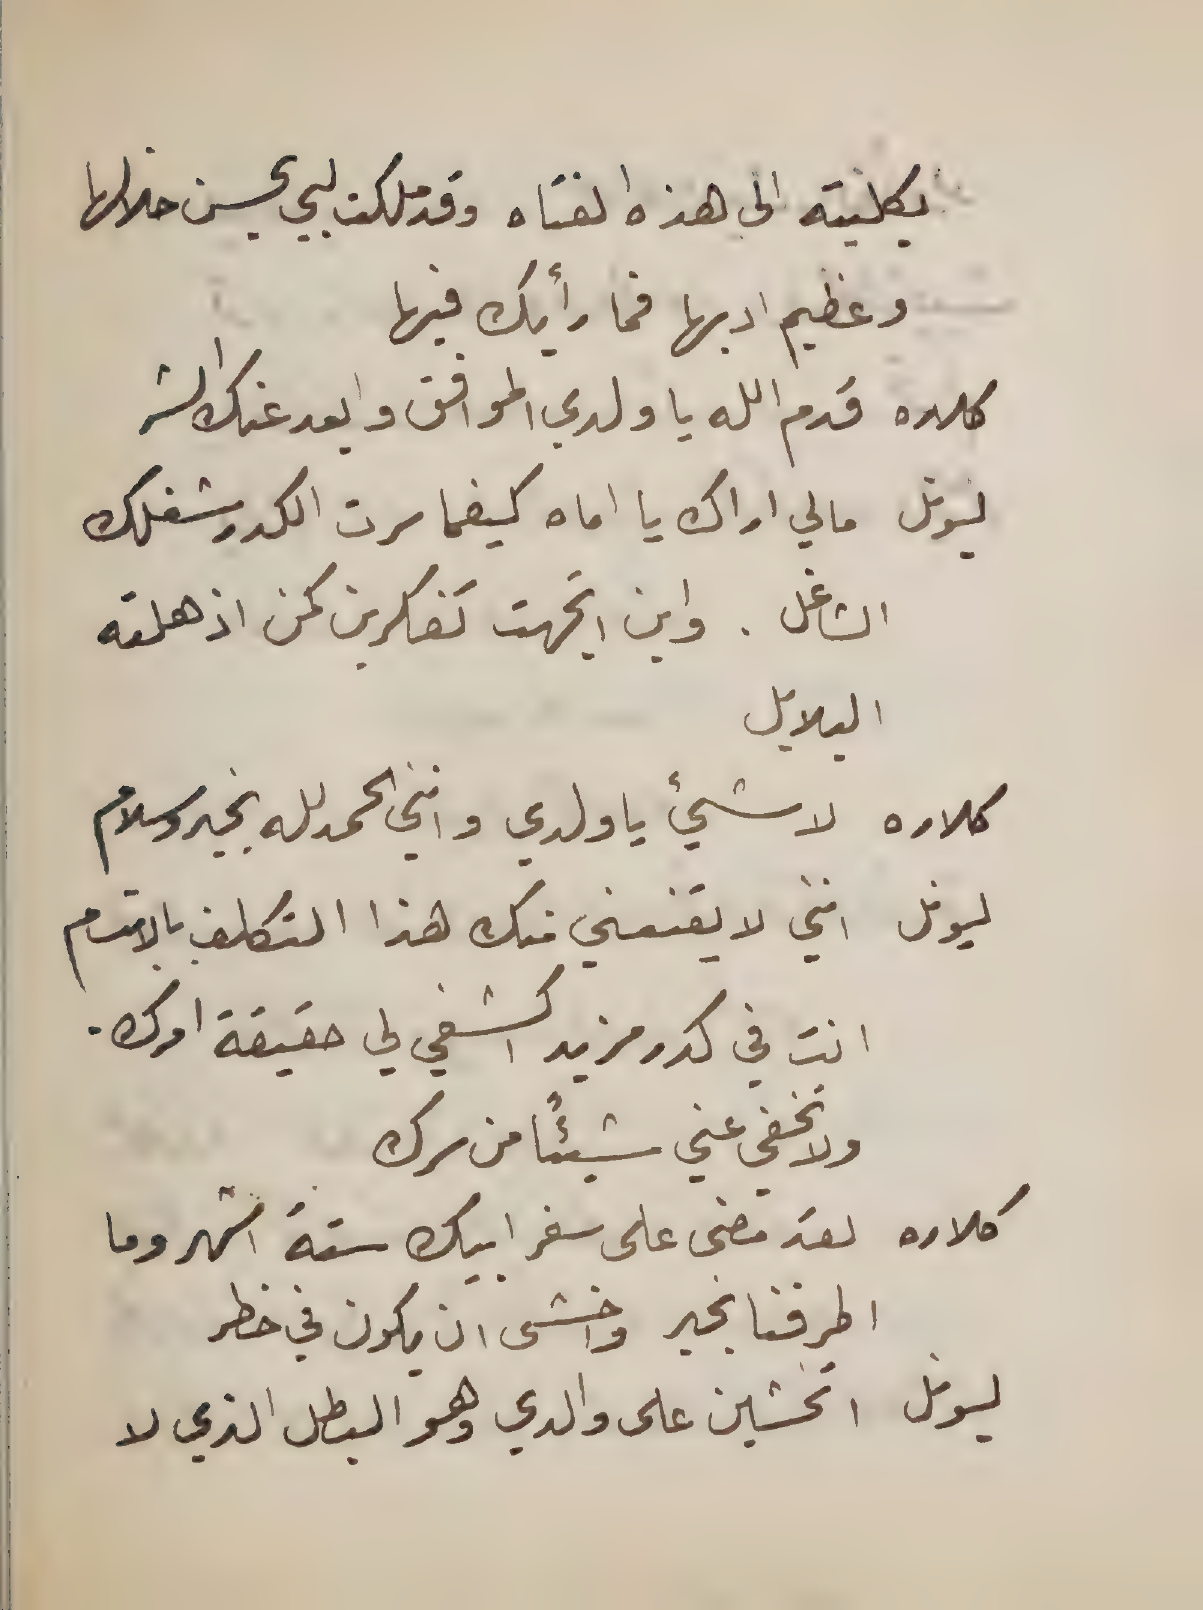 بكليته الى هذه الفتاه وقد ملكت لبي بحسن خلالها
وعظيم ادبها فما رأيك فيها
كلاره قدم الله يا ولدي الموافق وابعد عنك الشر
ليونل مالي اراك يا اماه كيفما سرت الكدر شغلك
الشاغل . واين اتجهت تفكرين كمن اذهلته
البلابل
كلاره لا شيئ يا ولدي وانني الحمد لله بخير وسلام
ليونل انني لا يقنعني منك هذا التكلف بالابتسام
انت في كدر مزيد اكشفي لي حقيقة امرك .
ولا تخفي عني شيئًا من سرك
كلاره لقد مضى على سفر ابيك ستة اشهر وما
اطرفنا بخبر واخشى ان يكون في خطر
ليونل اتخشين على والدي وهو البطل الذي لا